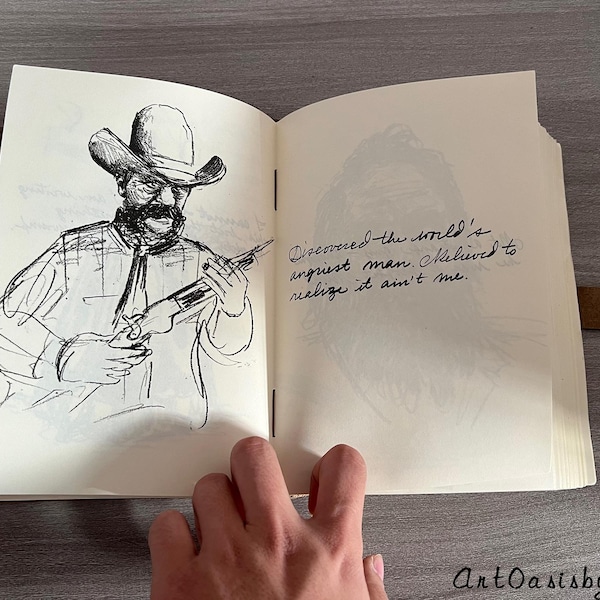 Discovered the world's
angriest man. Relieved to
realize it ain't me.
ArtOasisby